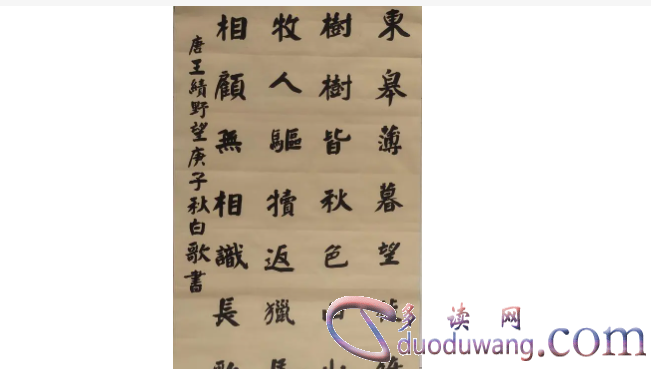 東皋薄暮望
樹樹皆秋色山山
牧人驅犢返獵馬
相顧無相識長歌
唐王績野望庚子秋白歌書
多读网
duoduwang.com